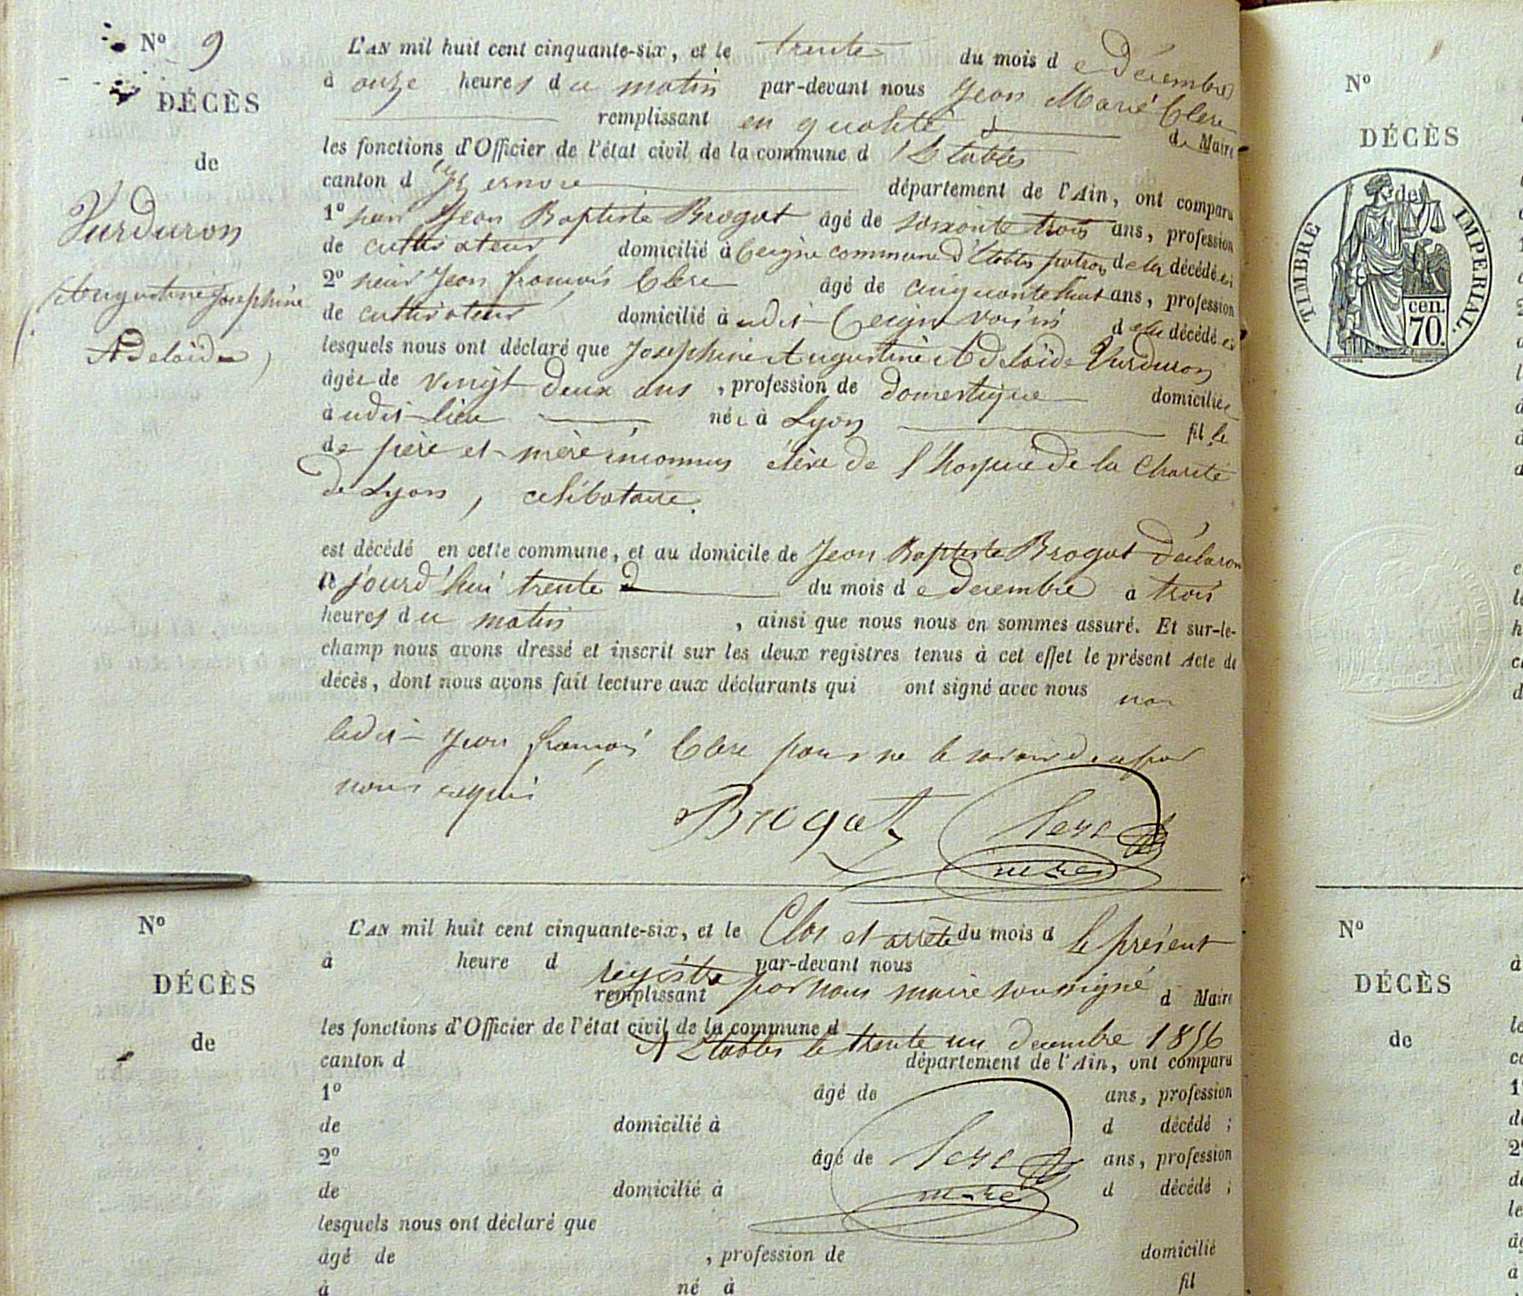 Nº 9
DÉCÈS
de
Vurduron
Augustine Josephine
Adelaïde
L'AN mil huit cent cinquante-six, et le trente du mois d e Décembre
à onze heures d u matin par-devant nous Jean Marie Clerc
remplissant en qualité d Maire
les fonctions d'Officier de l'état civil de la commune d'Etables
canton d'Izernore département de l'Ain, ont comparu
1º Jean Baptiste Brogat âgé de soixante trois ans, profession
de cultivateur domicilié à Ceigne commune d'Etables patron de la décédée
2º Jean françois Clerc âgé de cinquante huit ans, profession
de cultivateur domicilié à udit Ceigne voisin de la décédée
lesquels nous ont déclaré que Josephine Augustine Adelaïde Vurduron
âgée de vingt deux ans, profession de domestique domiciliée
à udit lieu née à Lyon fille
de père et mère inconnus élève de l'hospice de la Charité
de Lyon, celibataire.
est décédé en cette commune, et au domicile de Jean Baptiste Brogat déclarant
jourd'hui trente du mois d e decembre à trois
heures d u matin, ainsi que nous nous en sommes assuré. Et sur-le-
champ nous avons dressé et inscrit sur les deux registres tenus à cet effet le présent Acte de
décès, dont nous avons fait lecture aux déclarants qui ont signé avec nous non
ledit Jean françois Clerc pour ne le savoir de ce par
nous requis
Brogat Clerc
maire
Nº
DÉCÈS
de
L'AN mil huit cent cinquante-six, et le Clos et arrêté du mois d le présent
à heure d par-devant nous
registre par nous maire soussigné
remplissant d Maire
les fonctions d'Officier de l'état civil de la commune d
A Etables le trente un decembre 1856
canton d département de l'Ain, ont comparu
1º âgé de ans, profession
de domicilié à d décédé ;
2º âgé de Clerc ans, profession
de domicilié à maire d décédé ;
lesquels nous ont déclaré que
âgé de , profession de domicilié
à né à fil
Nº
DÉCÈS
de
TIMBRE IMPERIAL.
cen.
70.
Nº
DÉCÈS
de